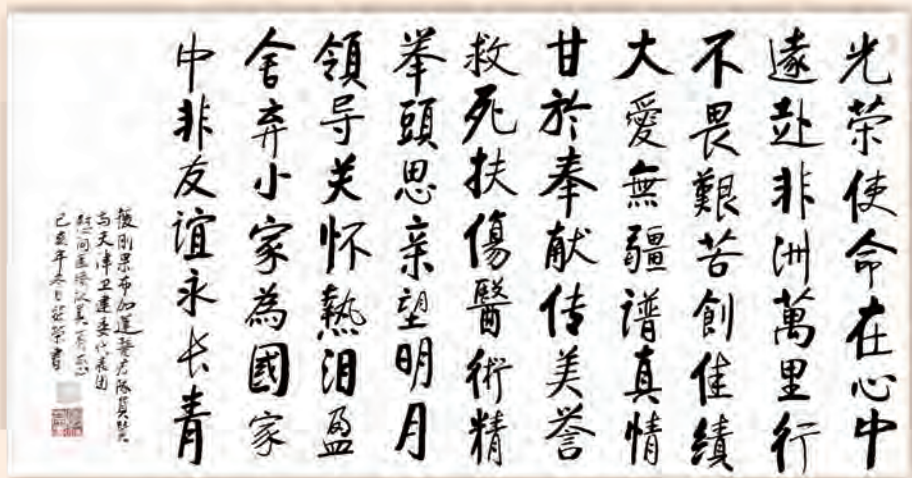 光荣使命在心中
遠赴非洲萬里行
不畏艱苦創佳績
大愛無疆谱真情
甘於奉献传美誉
救死扶傷醫術精
举頭思亲望明月
領导关怀熱泪盈
舍弃小家為國家
中非友谊永长青
援刚果布加蓬醫疗隊員
与天津卫建委代表团
慰问有感
己亥年冬月荣書